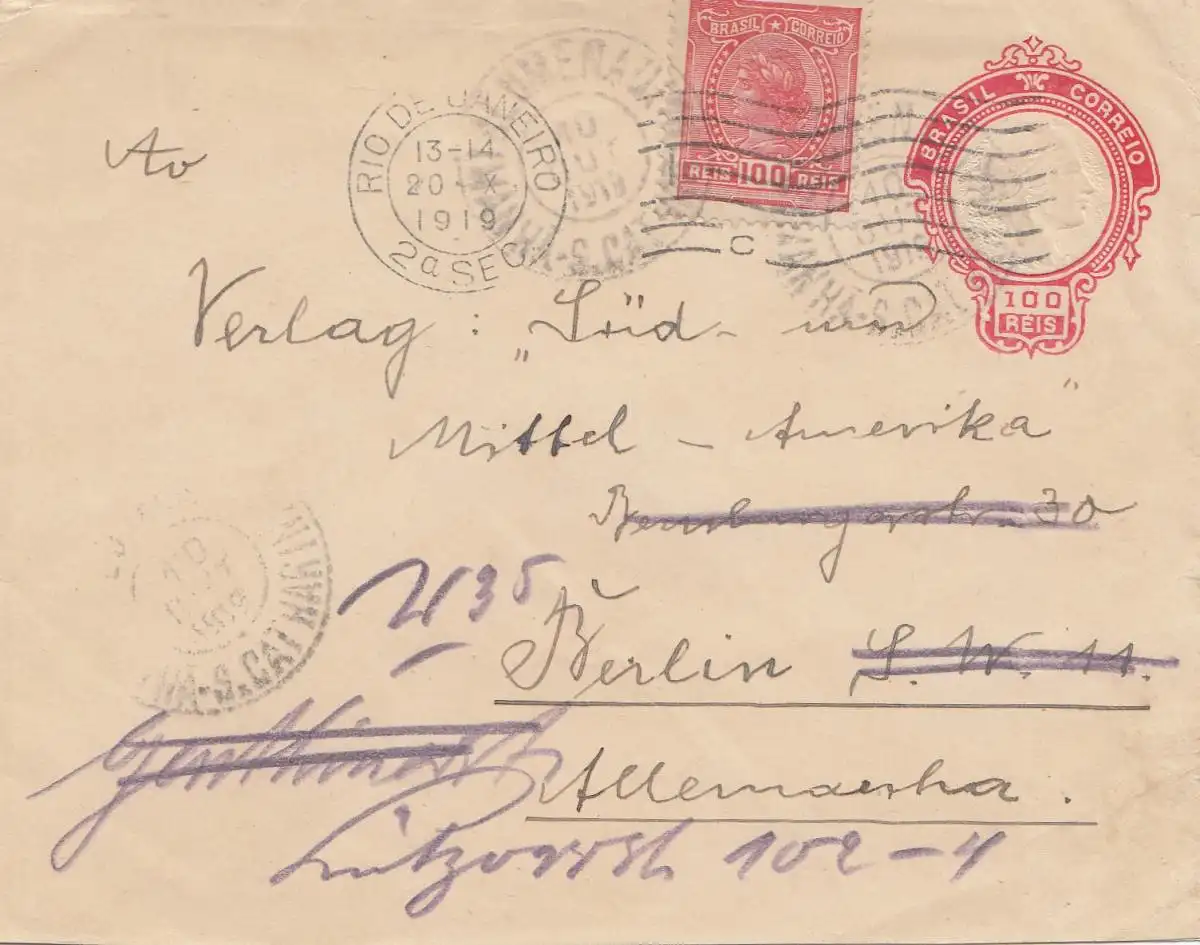 BRASIL CORREIO
REIS 100 REIS
BRASIL CORREIO
100
RÉIS
RIO DE JANEIRO
13-14
20 X
1919
2a SEC
C
Ao
Verlag: „Süd- und
Mittel - Amerika"
Bernburgerstr. 30
W 35
Berlin S. W. 11.
Allemanha.
Lützowstr. 102-4
10
S. CATHARINA